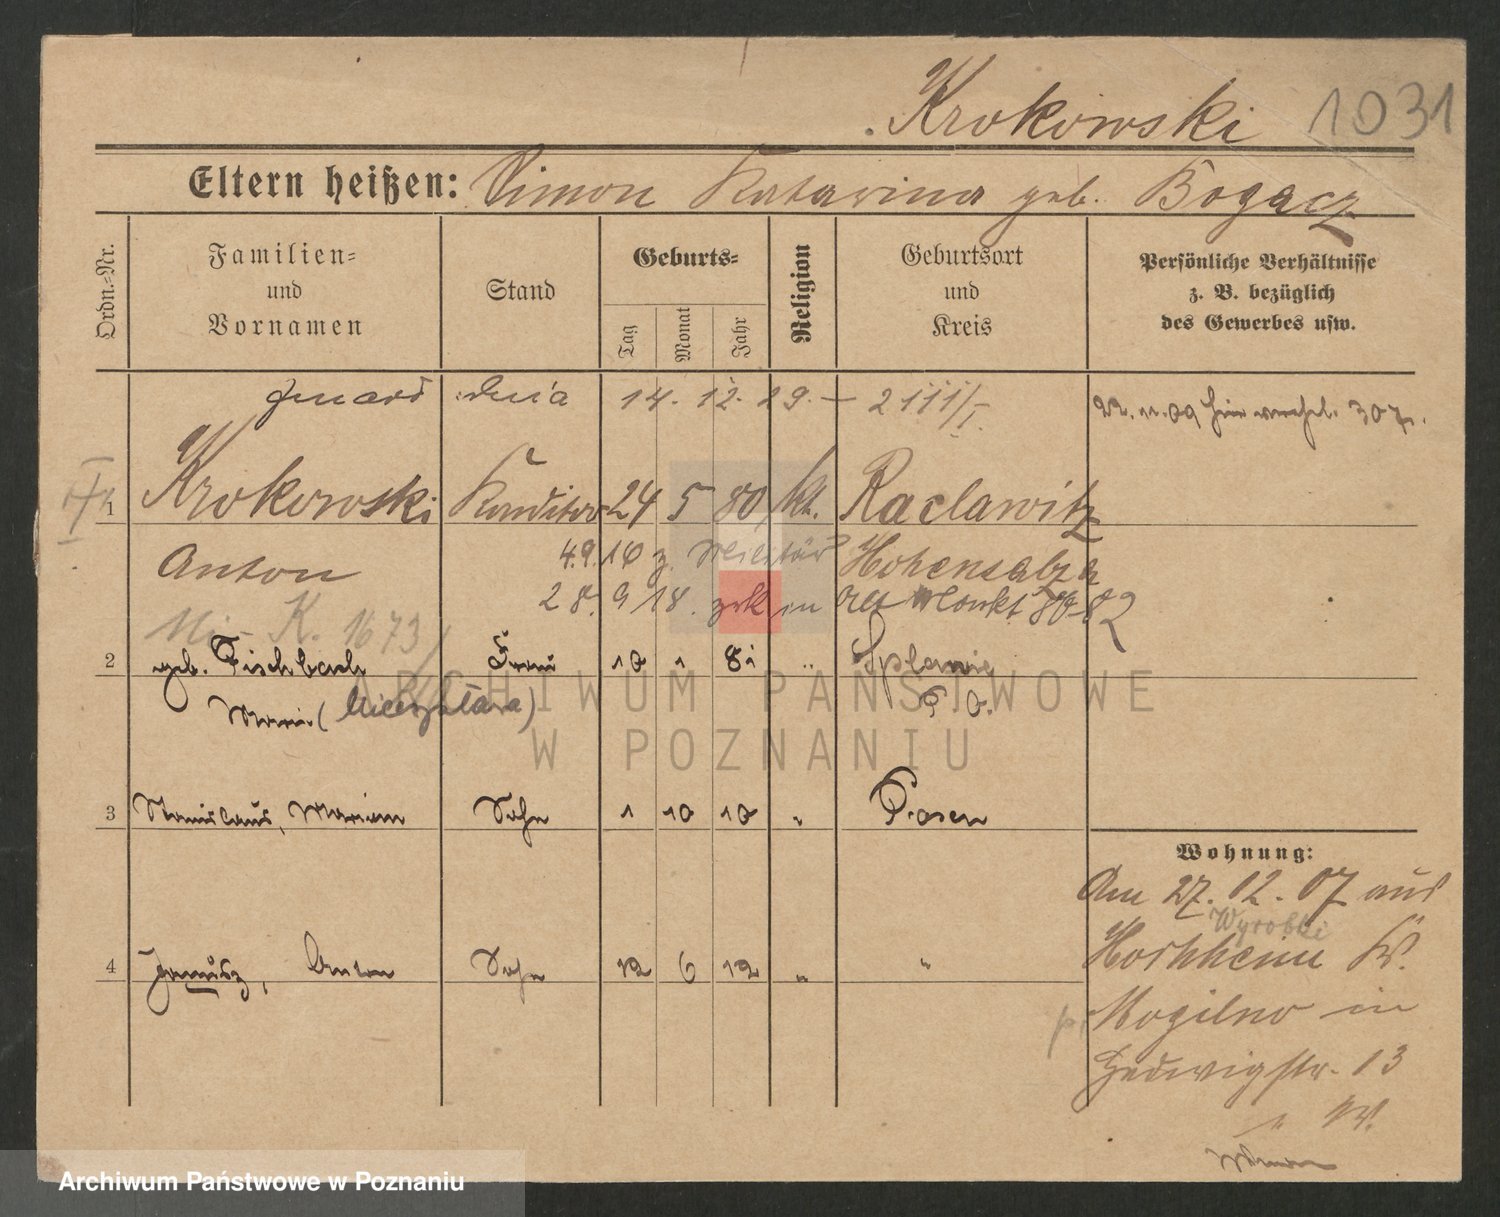 Krokowski 1031
Eltern heißen: Simon Katarina geb. Bogacz
Ordn.-Nr.
Familien-
und
Vornamen
Stand
Geburts-
Tag
Monat
Jahr
Religion
Geburtsort
und
Kreis
Persönliche Verhältnisse
z. B. bezüglich
des Gewerbes usw.
14. 12. 29. – 2111/I.
22. 11. 09 hier
1 Krokowski Konditor 24 5 80 kt. Raclawitz
Anton 4.9.16 z. Militär Hohensalza
28. 9 18. zrk in Alt
K. 1673/
2 geb. Fischbach Frau 10 1 81 " Splawie
Maria ( ) P. O.
3 Stanislaus, Marian Sohn 1 10 10 " Posen
Wohnung:
Am 27. 12. 07 aus
Wyrobki
Hochheim K.
4 Janusz, Anton Sohn 12 6 12 " "
Mogilno in
Hedwigstr. 13
ARCHIWUM PAŃSTWOWE
W POZNANIU
Archiwum Państwowe w Poznaniu